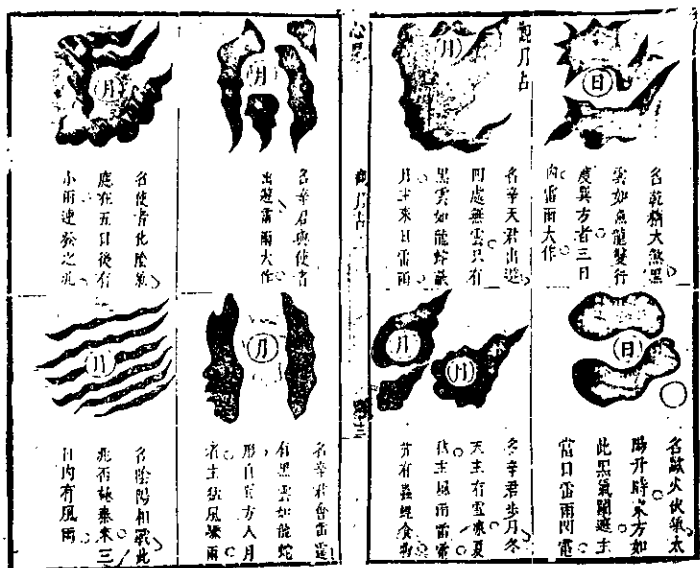 日
名乾大煞黑
雲如魚龍雙行
度巽方者三日
內雷雨大作
觀月占
月
名辛天君出遊
四處無雲只有
黑雲如龍蛇蔽
月主來日雷雨
日
名火伏太
陽升時東方如
此黑氣遮主
當日雷雨閃電
月
月
名辛君步月冬
天主有雪凍夏
秋主風雨雷電
有蟲食物
觀月占
月
名辛君與使者
出遊雷雨大作
月
名使者化陰氣
應在五日後有
小雨連發之兆
月
名辛君會雷霆
有黑雲如龍蛇
形自四方入月
者主狂風驟雨
月
名陰陽和戰此
兆否極泰來三
日內有風雨